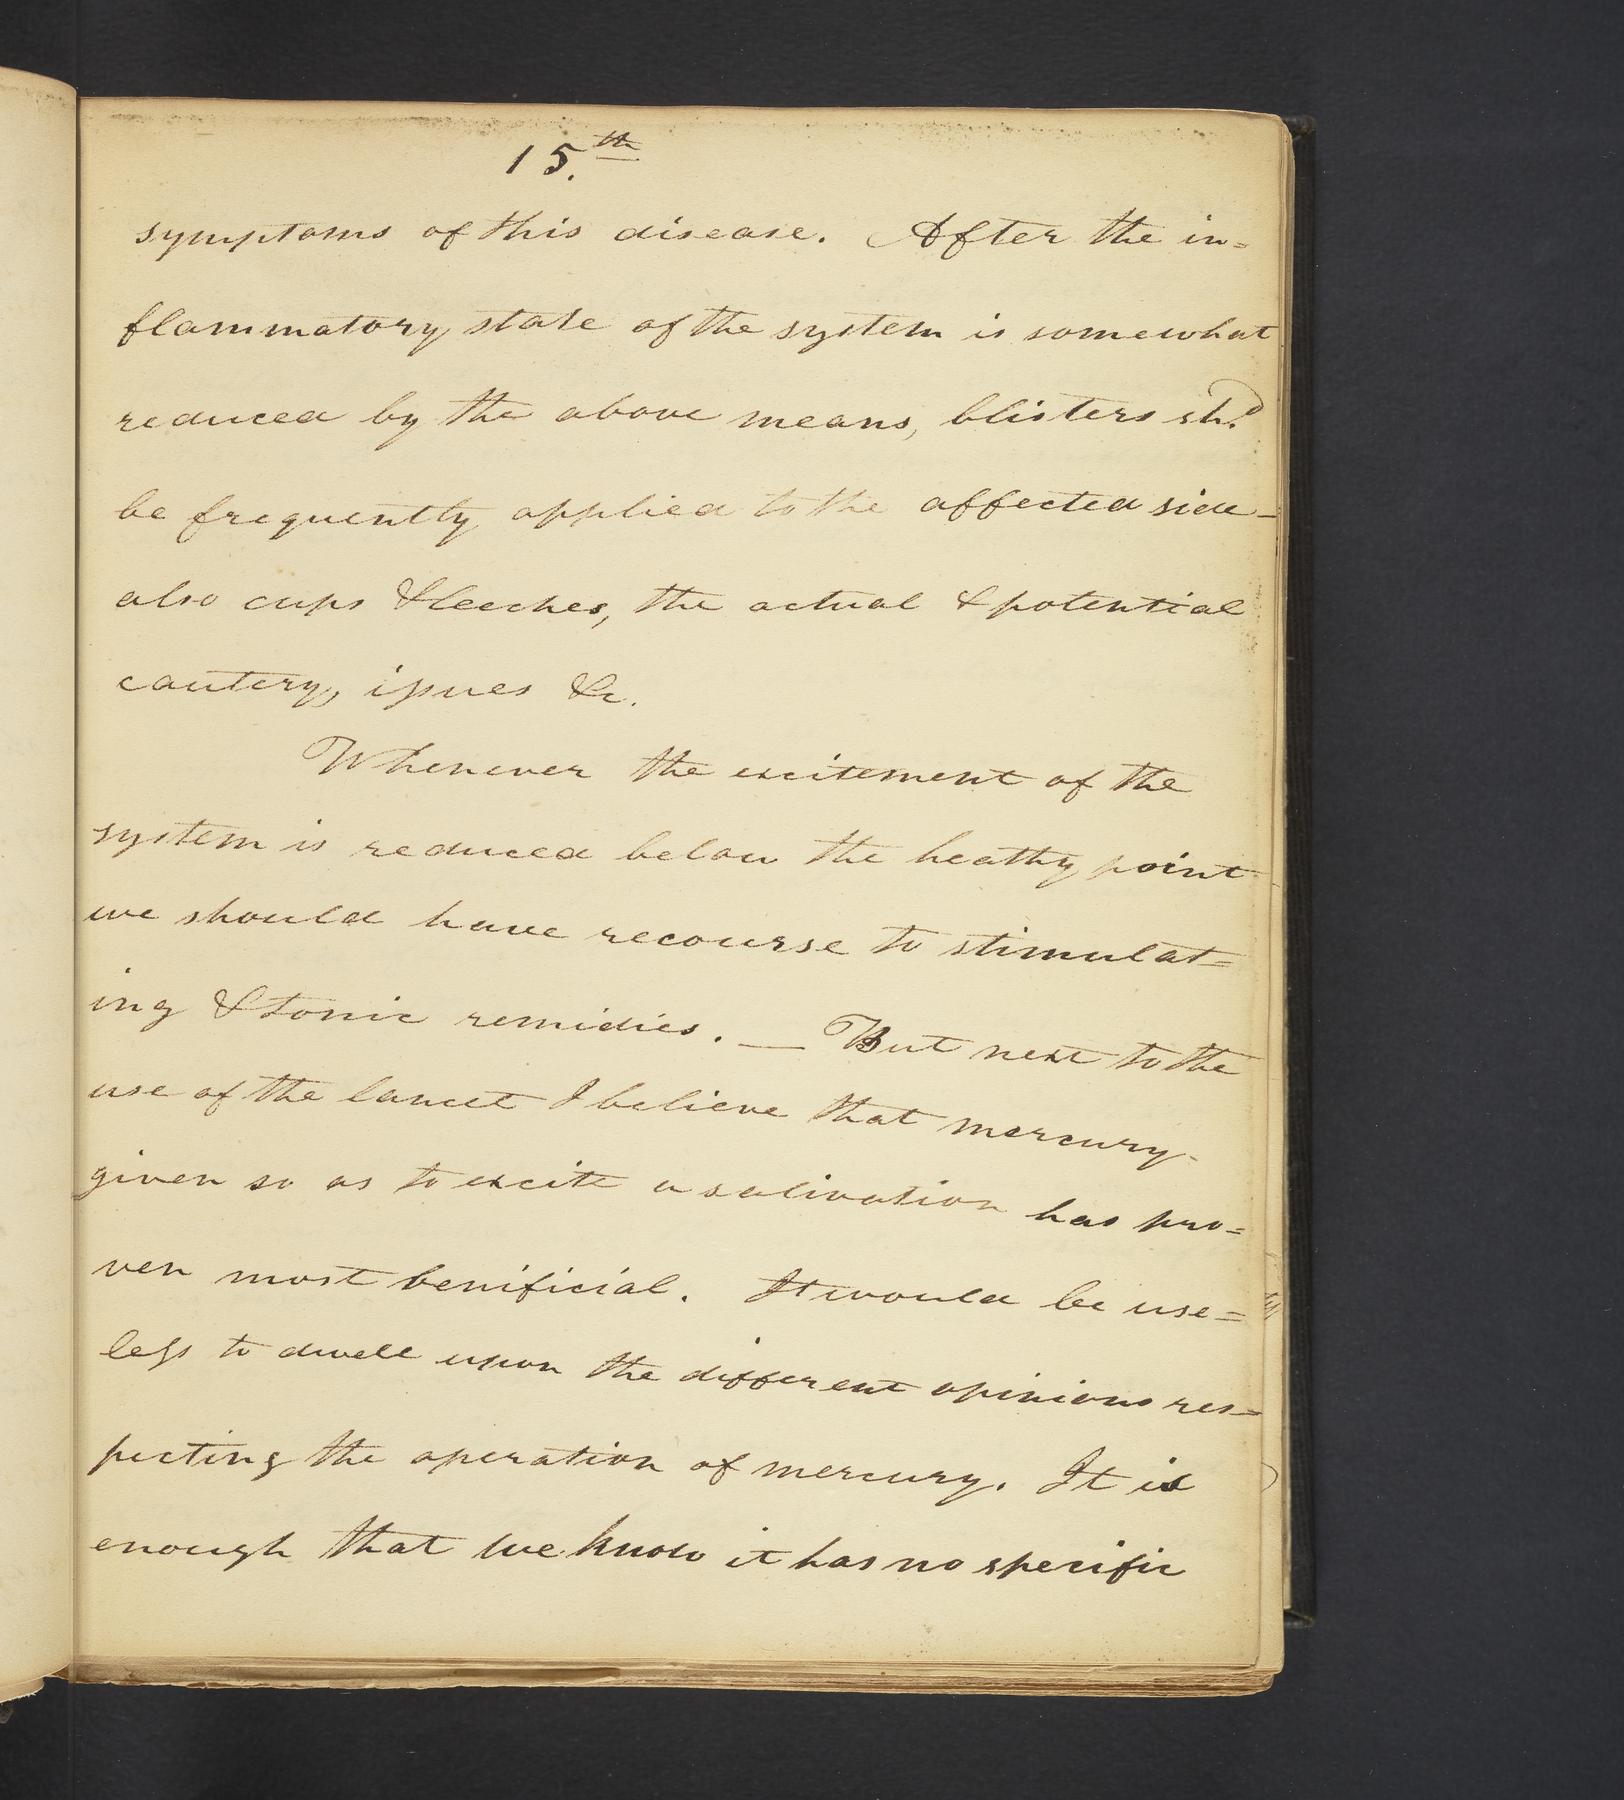 15.th
symptoms of this disease. After the in=
flammatory state of the system is somewhat
reduced by the above means, blisters shd.
be frequently applied to the affected side_
also cups & leeches, the actual & potential
cautery, issues &c.
Whenever the excitement of the
system is reduced below the heathy point
we should have recourse to stimulat=
ing & tonic remidies. _ But next to the
use of the lancet I believe that mercury
given so as to excite a salivation has pro=
ven most benificial. It would be use=
less to dwell upon the different opinions res=
pecting the operation of mercury. It is
enough that we know it has no specific